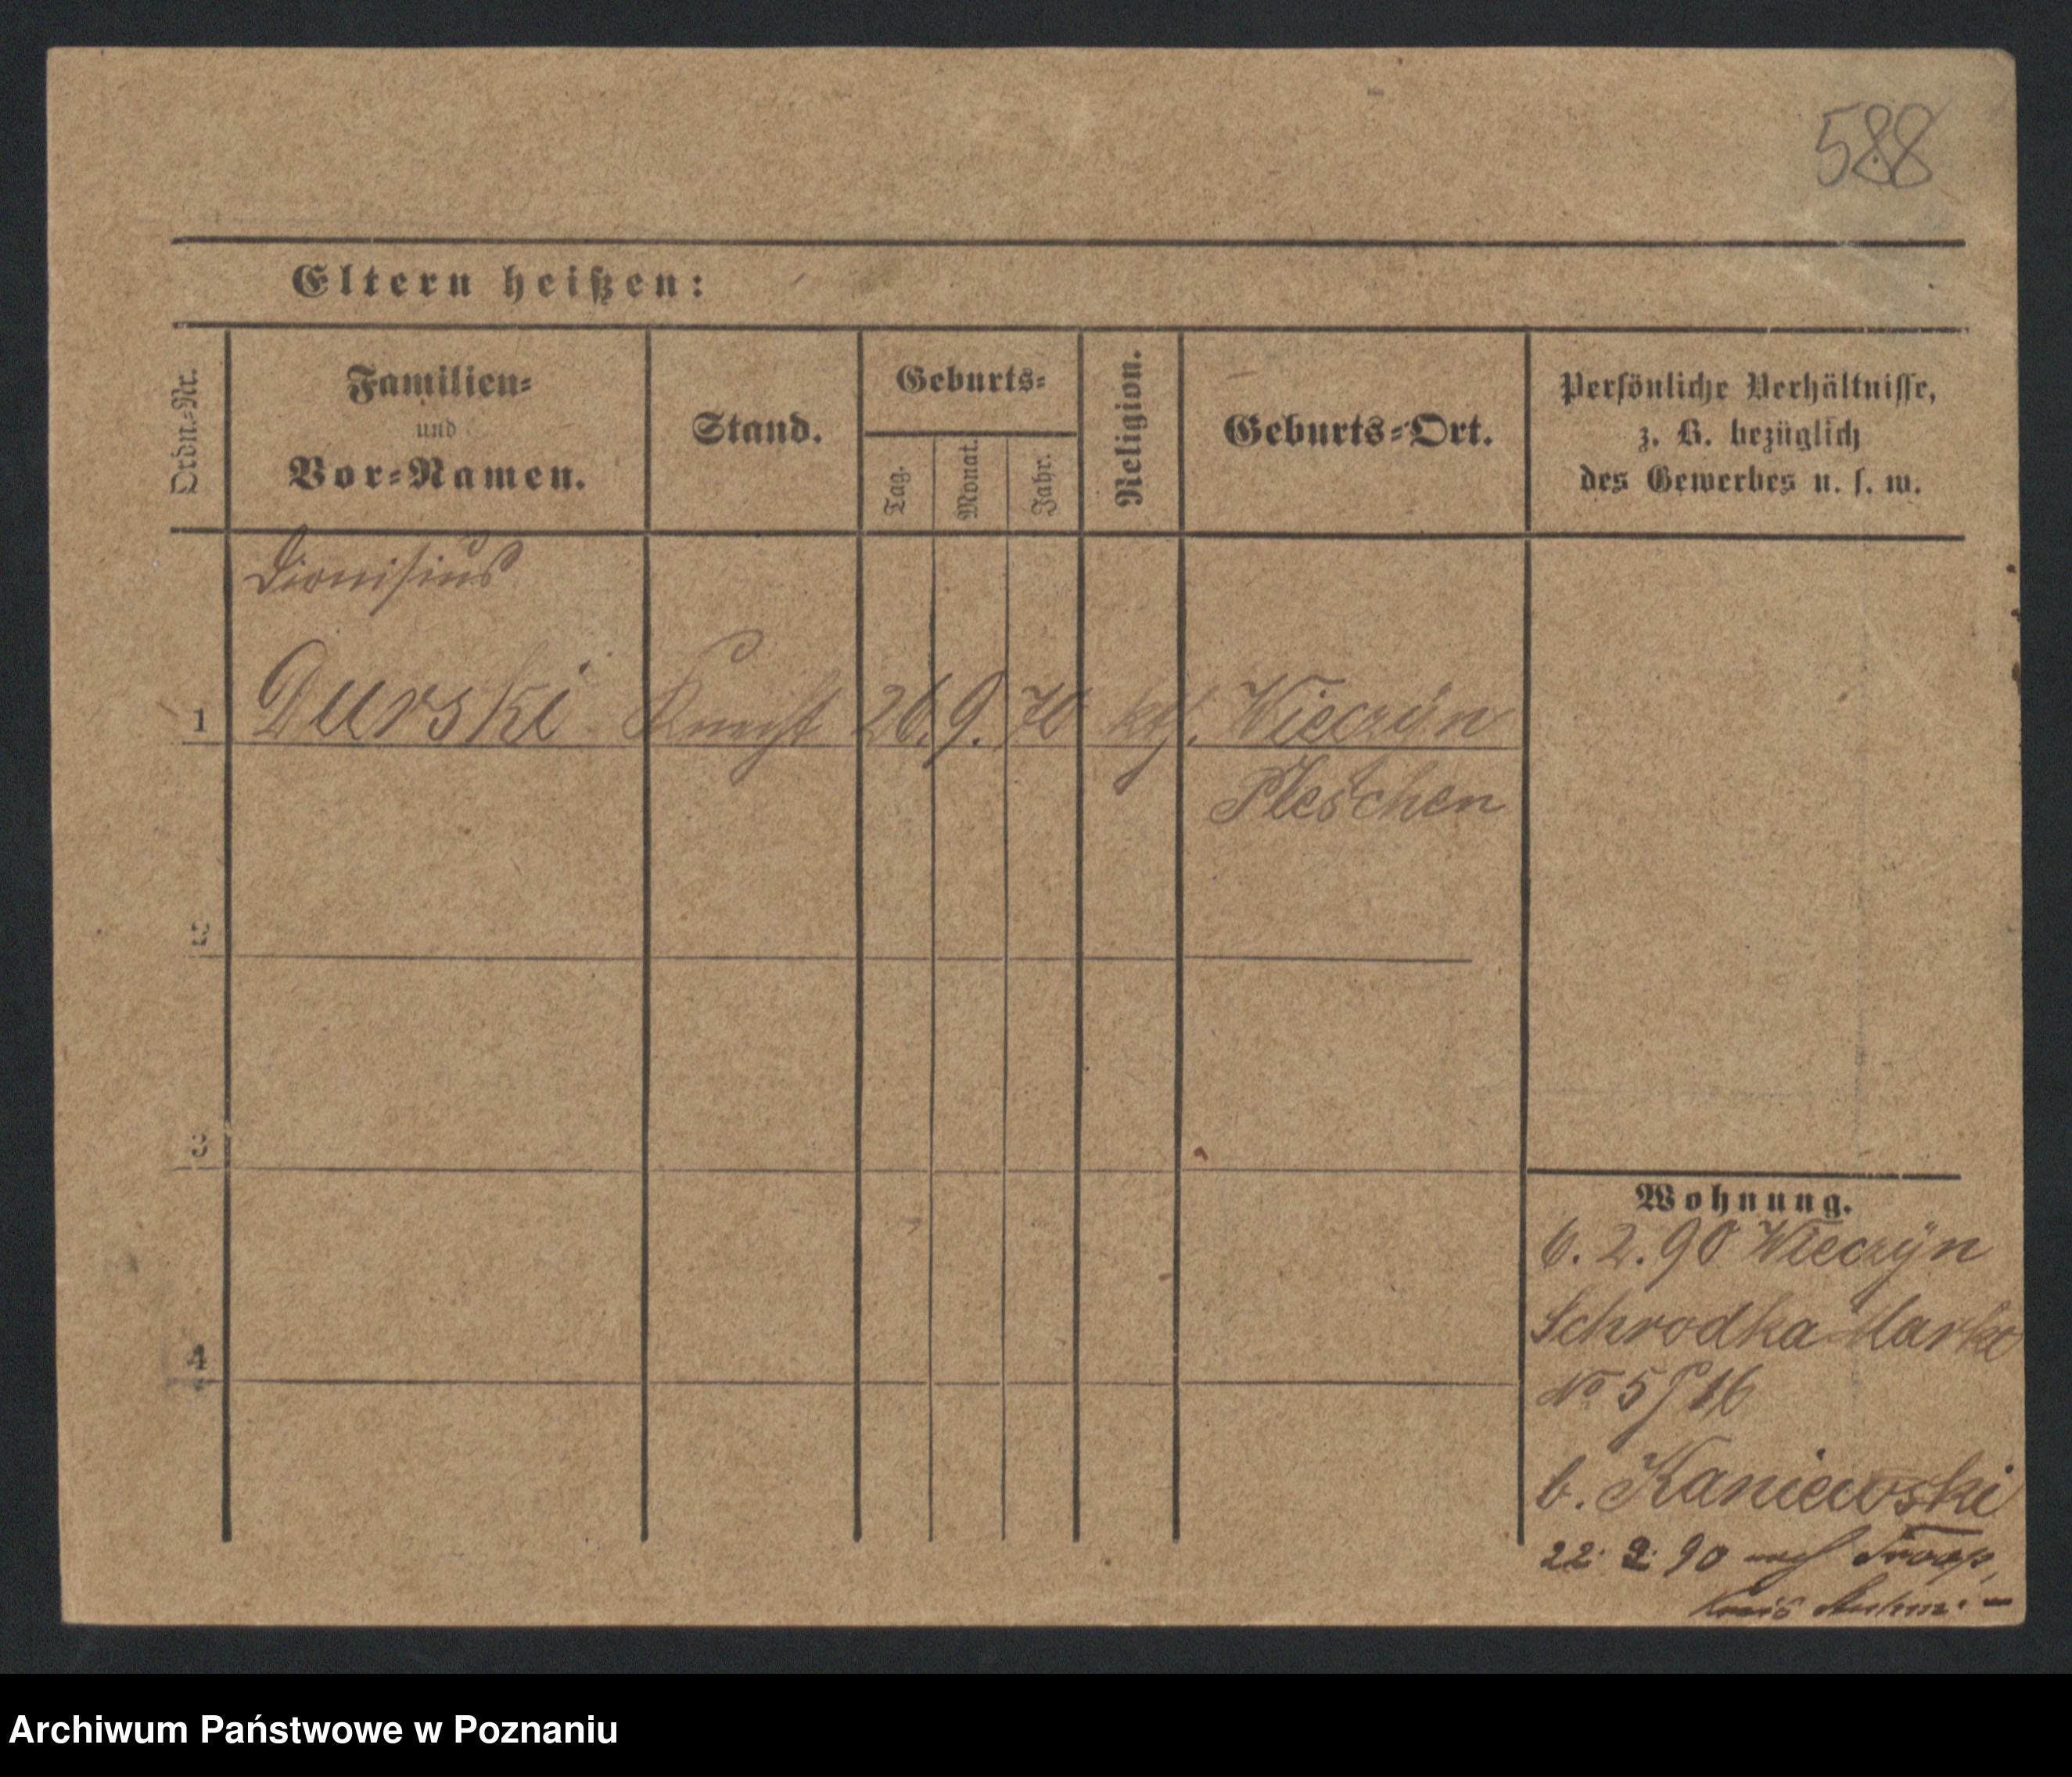 588
Eltern heißen:
Ordn.-Nr.
Familien-
und
Vor-Namen.
Stand.
Geburts-
Tag.
Monat.
Jahr.
Religion.
Geburts-Ort.
Persönliche Verhältnisse,
z. B. bezüglich
des Gewerbes u. s. w.
Dionisius
1 Durski Knecht 26. 9. 70 kth. Wieczyn
Pleschen
2
3
4
Wohnung.
6. 2. 90 Wieczyn
Schrodka Markt
No 5/16
b. Kaniewski
22. 2. 90 nach
Kreis
Archiwum Państwowe w Poznaniu